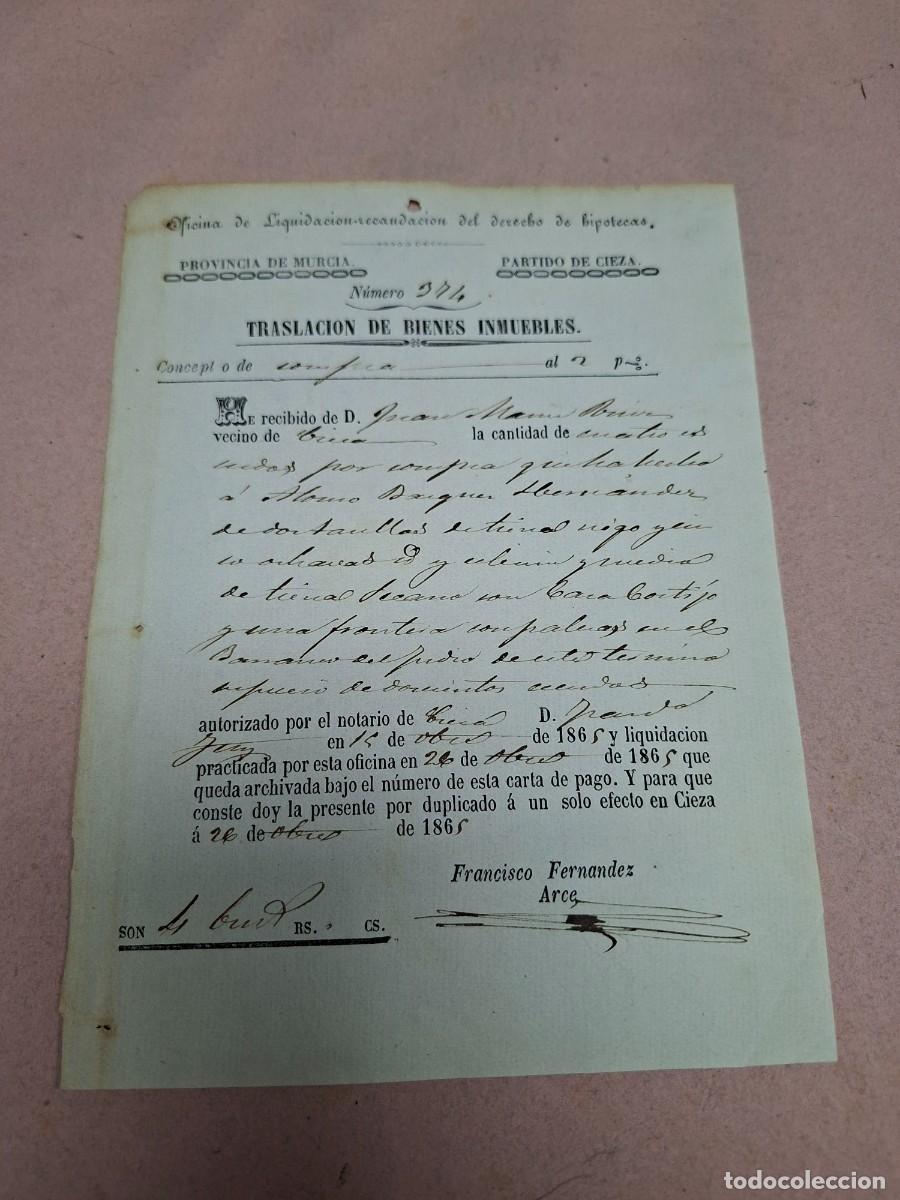 Oficina de Liquidacion-recaudacion del derecho de hipotecas.
PROVINCIA DE MURCIA. PARTIDO DE CIEZA.
Número 374.
TRASLACION DE BIENES INMUEBLES.
Concepto de compra al 2 p%.
HE recibido de D. Juan Marin
vecino de Cieza la cantidad de cuatro es
cudos por compra que ha hecho
á Alonso Hernandez
de dos taullas de tierra riego y cin
co ochavas id y celemin y media
de tierra secano con Casa Cortijo
y una frontera con paleras en el
Barranco del Judio de este termino
en precio de doscientos escudos
autorizado por el notario de Cieza D.
en 15 de Obre de 1865 y liquidacion
practicada por esta oficina en 26 de Obre de 1865 que
queda archivada bajo el número de esta carta de pago. Y para que
conste doy la presente por duplicado á un solo efecto en Cieza
á 26 de Obre de 1865
Francisco Fernandez
Arce,
SON 4 RS. CS.
todocoleccion